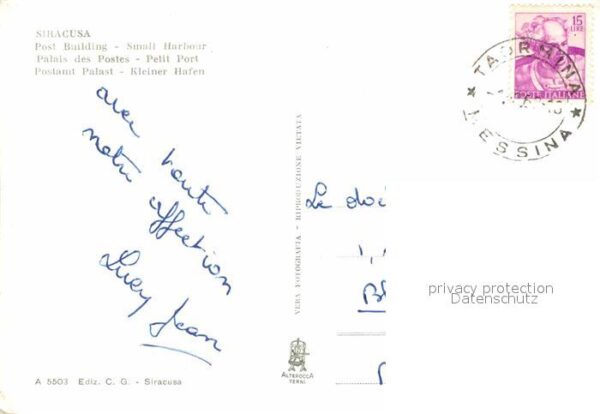 SIRACUSA
Post Building - Small Harbour
Palais des Postes - Petit Port
Postamt Palast - Kleiner Hafen
avec toute
notre affection
Lucy Jean
A 5503 Ediz. C. G. - Siracusa
VERA FOTOGRAFIA - RIPRODUZIONE VIETATA
ALTEROCCA
TERNI
15
LIRE
POSTE ITALIANE
TAORMINA
MESSINA
Le
privacy protection
Datenschutz